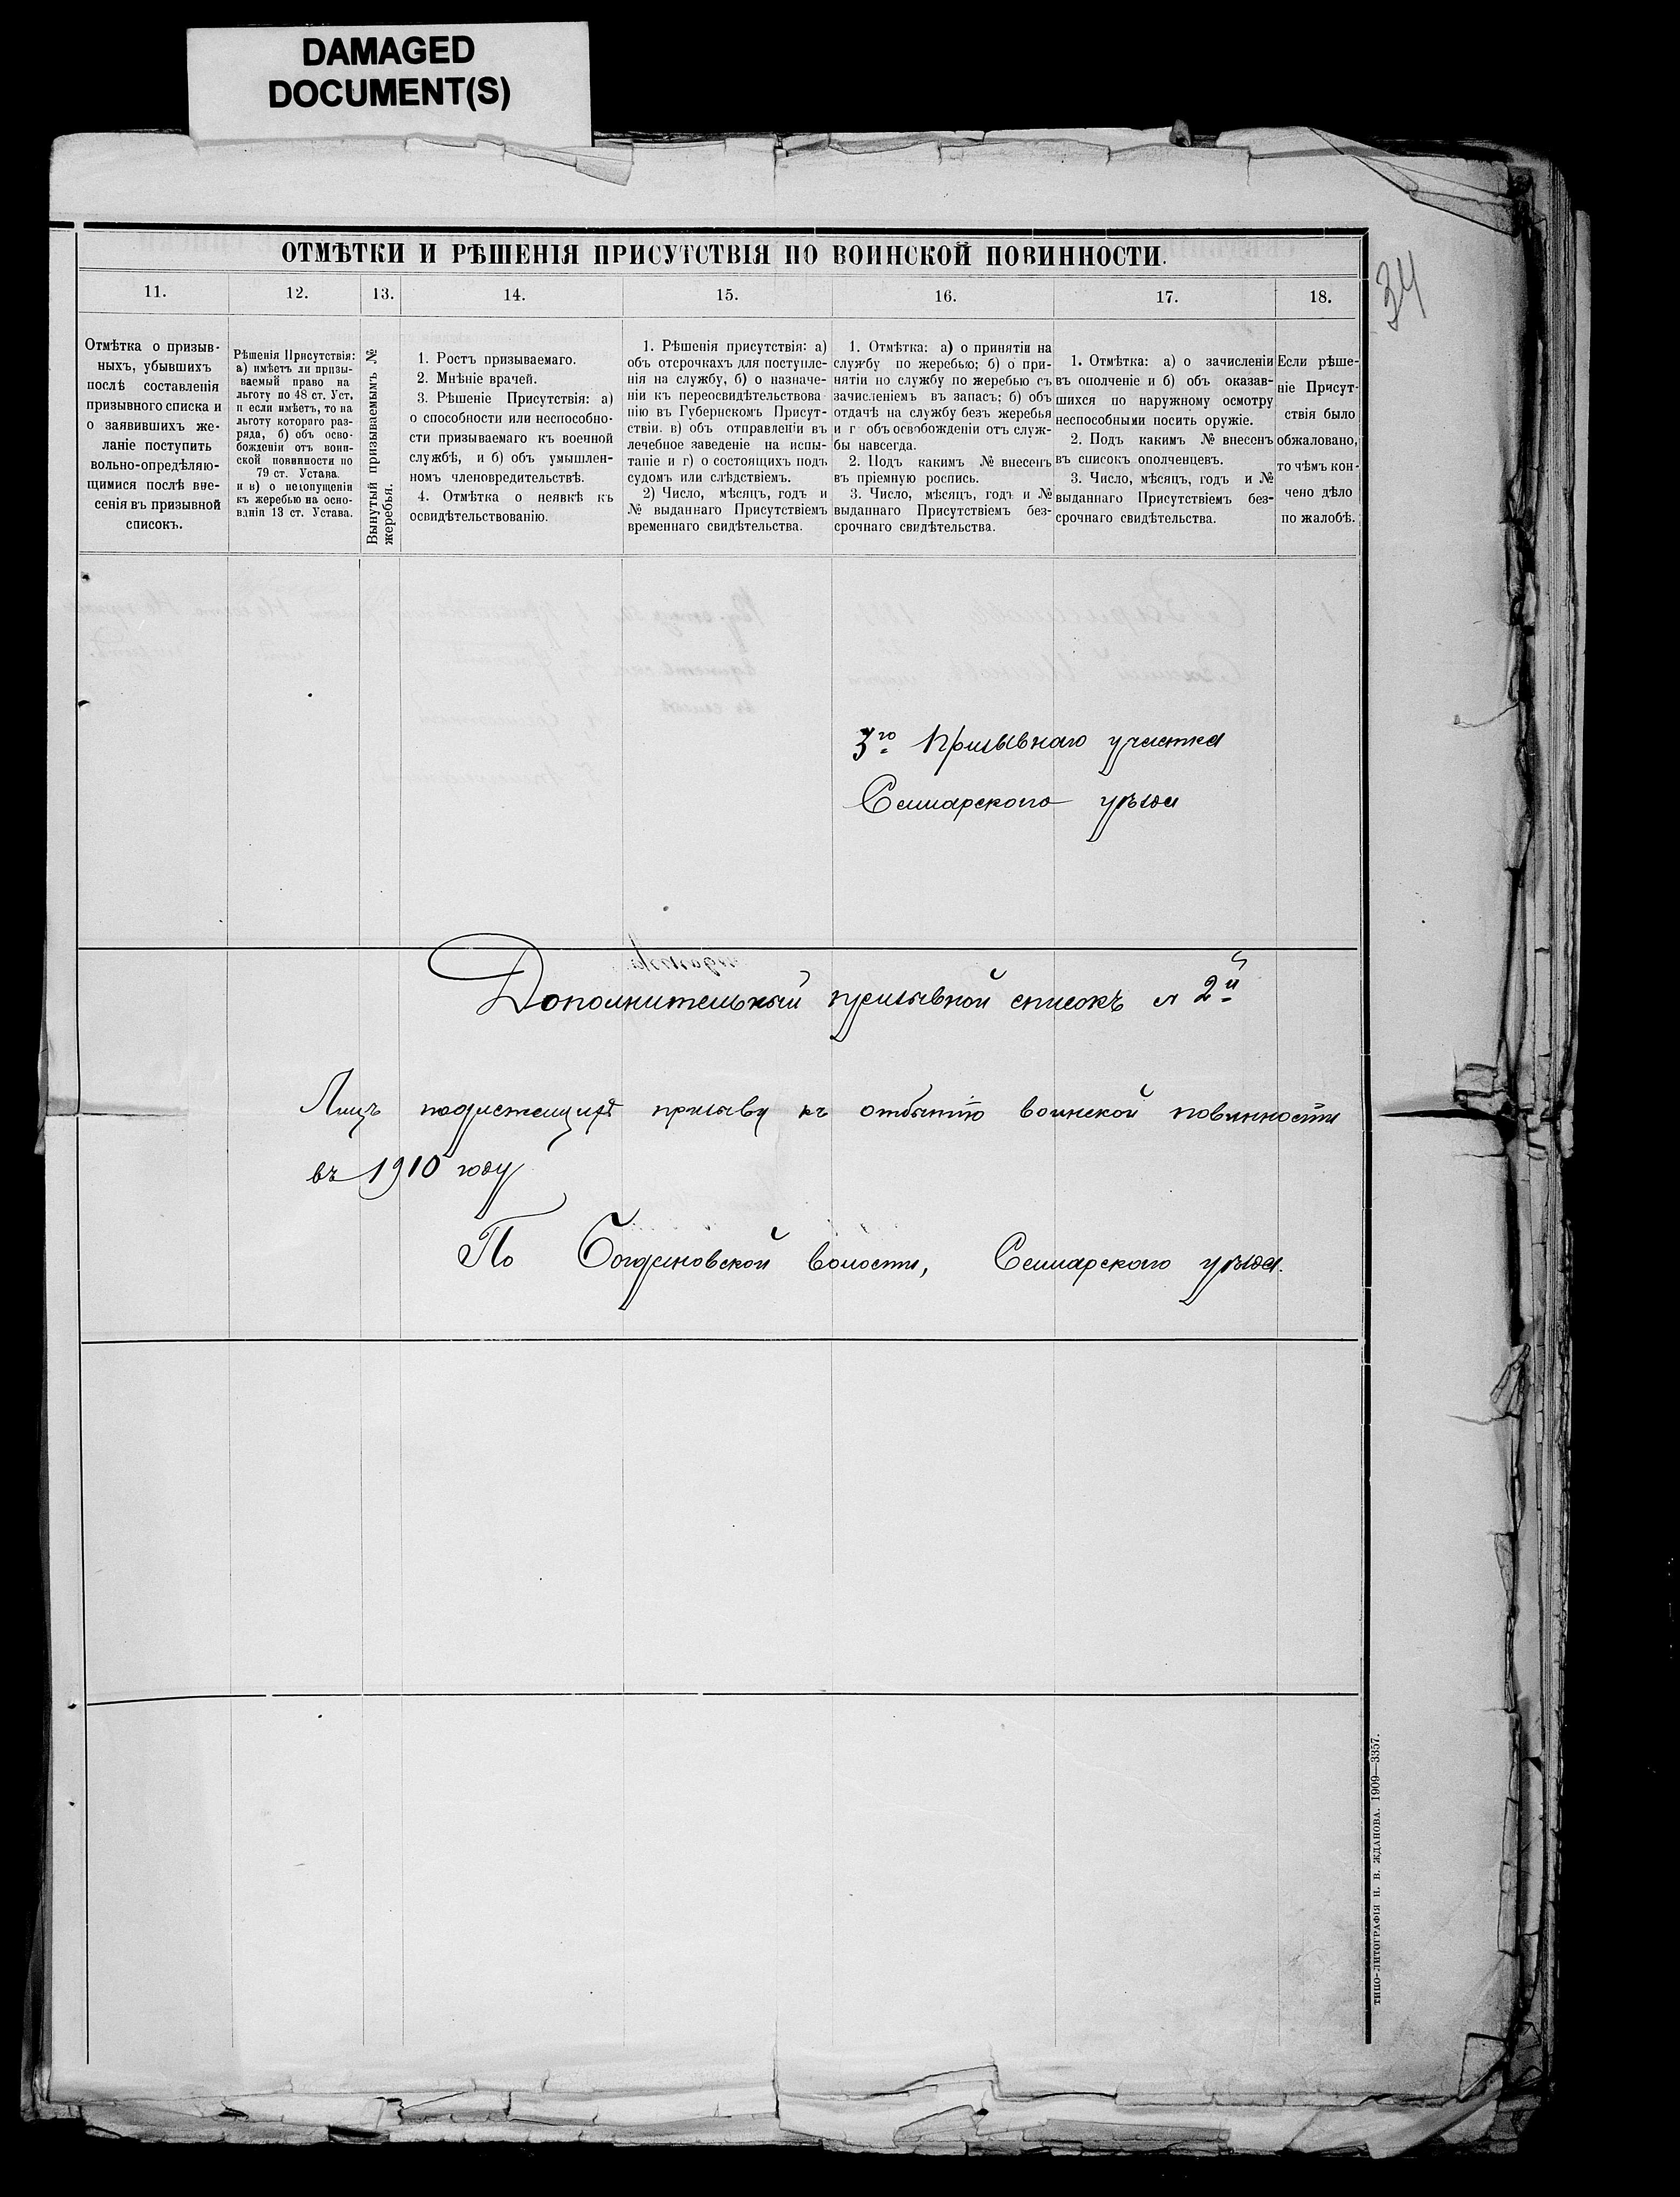 DAMAGED
DOCUMENT(S)
34
ОТМѢТКИ И РѢШЕНІЯ ПРИСУТСТВІЯ ПО ВОИНСКОЙ ПОВИННОСТИ.
11.
12.
13.
14.
15.
16.
17.
18.
Отмѣтка о призыв-
ныхъ, убывшихъ
послѣ составленія
призывного списка и
о заявившихъ же-
ланіе поступить
вольно-опредѣляю-
щимися послѣ вне-
сенія въ призывной
списокъ.
Рѣшенія Присутствія:
а) имѣетъ ли призы-
ваемый право на
льготу по 48 ст. Уст.
и если имѣетъ, то на
льготу котораго раз-
ряда, б) объ осво-
божденіи отъ воин-
ской повинности по
79 ст. Устава.
и в) о недопущеніи
къ жеребью на осно-
ваніи 13 ст. Устава.
Вынутый призываемымъ №
жеребья.
1. Ростъ призываемаго.
2. Мнѣніе врачей.
3. Рѣшеніе Присутствія: а)
о способности или неспособно-
сти призываемаго къ военной
службѣ, и б) объ умышлен-
номъ членовредительствѣ.
4. Отмѣтка о неявкѣ къ
освидѣтельствованію.
1. Рѣшенія присутствія: а)
объ отсрочкахъ для поступле-
нія на службу, б) о назначе-
ніи къ переосвидѣтельствова
нію въ Губернскомъ Присут-
ствіи. в) объ отправленіи въ
лечебное заведеніе на испы-
таніе и г) о состоящихъ подъ
судомъ или слѣдствіемъ.
2) Число, мѣсяцъ, годъ и
№ выданнаго Присутствіемъ
временнаго свидѣтельства.
1. Отмѣтка: а) о принятіи на
службу по жеребью; б) о при-
нятіи но службу по жеребью съ
зачисленіемъ въ запасъ; б) объ
отдачѣ на службу безъ жеребья
и г объ освобожденіи отъ служ-
бы навсегда.
2. Подъ какимъ № внесенъ
въ пріемную роспись.
3. Число, мѣсяцъ, годъ и №
выданнаго Присутствіемъ без-
срочнаго свидѣтельства.
1. Отмѣтка: а) о зачисленіи
въ ополченіе и б) объ оказав-
шихся по наружному осмотру
неспособными носить оружіе.
2. Подъ какимъ № внесенъ
въ списокъ ополченцевъ.
3. Число, мѣсяцъ, годъ и №
выданнаго Присутствіемъ без-
срочнаго свидѣтельства.
Если рѣше-
ніе Присут-
ствія было
обжаловано,
то чѣмъ кон-
чено дѣло
по жалобѣ.
3го Призывнаго участка
Самарского уѣзда
Дополнительный призывной списокъ 2й
Лицъ подлежащихъ призыву къ отбытію воинской повинности
въ 1910 году
По Богдановской волости, Самарского уѣзда.
ТИПО-ЛИТОГРАФІЯ Н. В. ЖДАНОВА. 1909—3357.